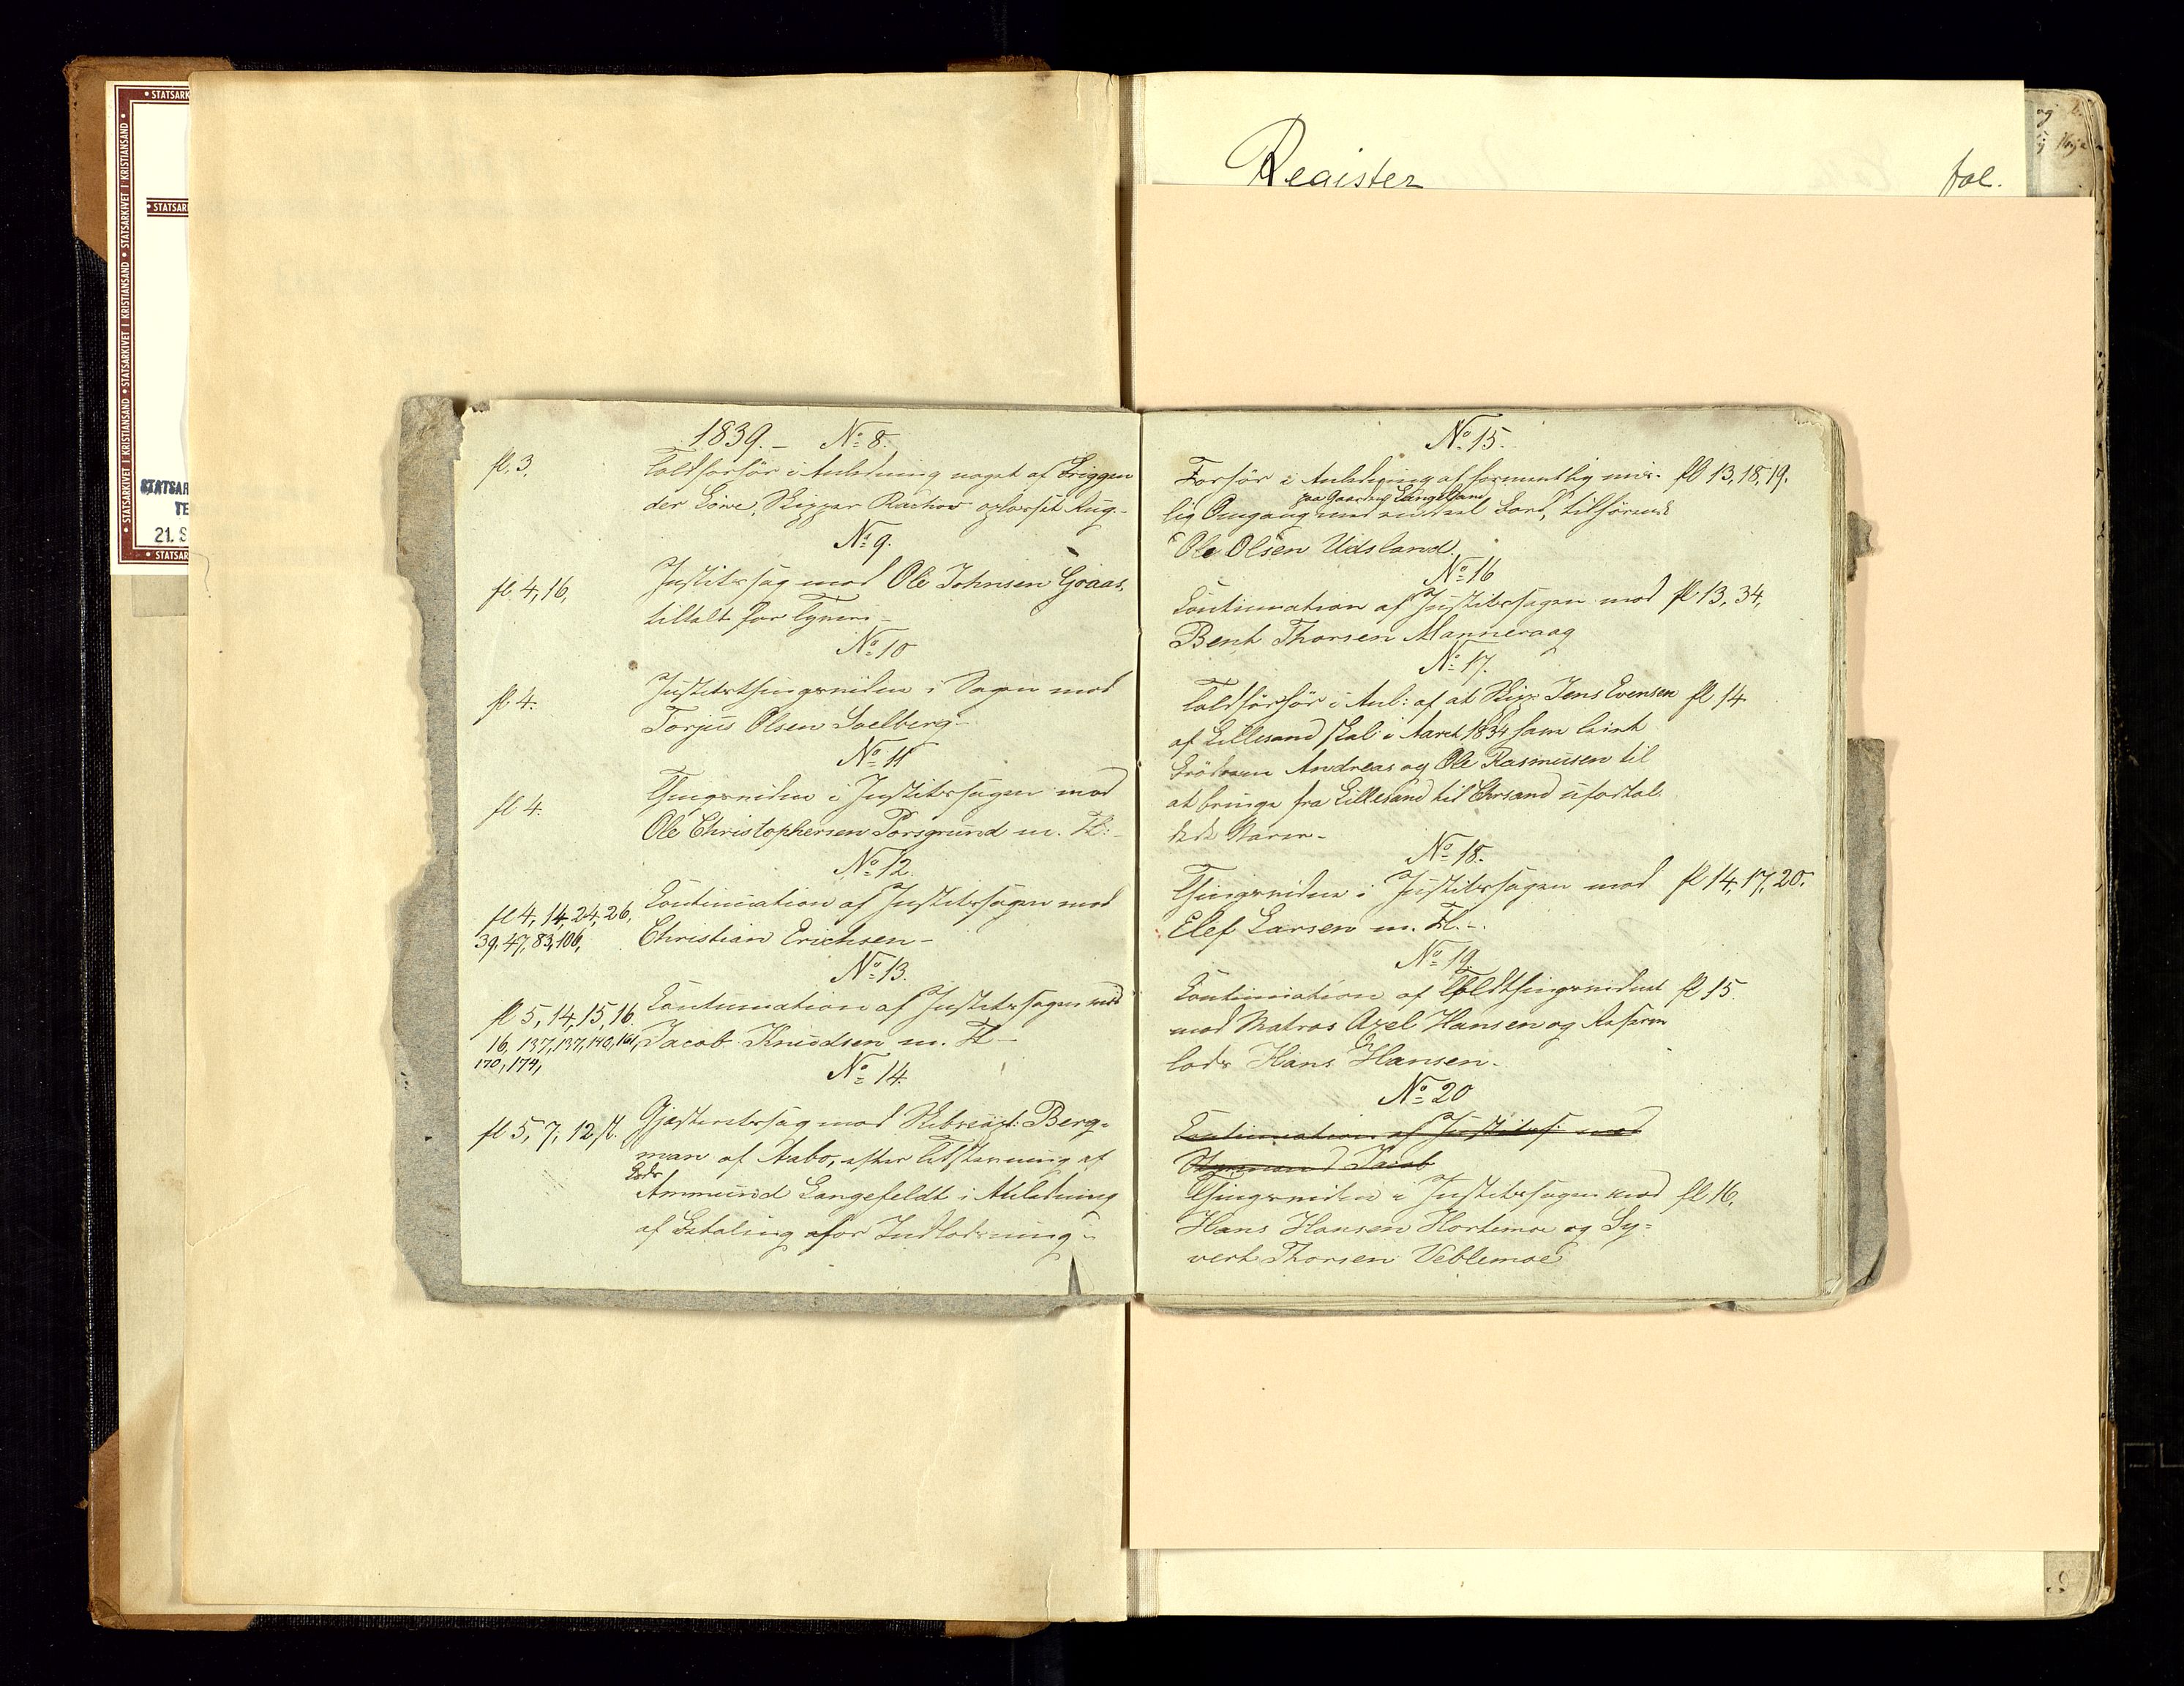 Register fol.
STATSARKIVET I KRISTIANSAND
21. S
1839. – No 8.
fl. 3. Toldforhör i Anledning noget af Briggen
der Löwe, Skipper Raschow oplosset Aug.-
No 9.
fl. 4, 16, Justitssag mod Ole Johnsen Graas,
tiltalt for Tyveri –
No 10
fl 4. Justitsthingsvidne i Sagen mod
Torjus Olsen Soelberg –
No 11
fl 4. Thingsvidne i Justitssagen mod
Ole Christophersen Porsgrund m. Fl: –
No 12.
fl 4, 14, 24, 26, Continuation af Justitssagen mod
39, 47, 83, 106, Christian Erichsen –
No 13.
fl 5, 14, 15, 16. Continuation af Justitssagen mod
16, 137, 137, 140, 161, Jacob Knudsen m. Fl –
170, 174,
No 14.
fl 5, 7, 12 Gjæsteretssag mod Skibscapt: Berg-
man af Aabo, efter Udstævning af
Lods
Ammund Langefeldt i Anledning
af Betaling for Indlodsning –
No 15.
Forhör i Anledning af formentlig - fl 13, 18, 19.
paa Gaarden
lig Omgang med Ild, tilhörende
Ole Olsen Udsland.
No 16
Continuation af Justitssagen mod fl 13, 34,
Bent Thorsen Manneraag
No 17.
Toldforhör i Anl: af at Skip: Jens Evensen fl 14
af Lillesand skal i Aaret 1834 have leiet
Brödrene Andreas og Ole Rasmusen til
at bringe fra Lillesand til Chrsand ufortol-
dede Varer –
No 18.
Thingsvidne i Justitssagen mod fl 14, 17, 20.
Elef Larsen m. Fl. –
No 19.
Continuation af Toldthingsvidnet fl 15.
mod Matros Axel Hansen og Reserve
lods Hans Hansen –
No 20
Continuation af Justitss: mod
Styrmand Jacob
Thingsvidne i Justitssagen mod fl 16.
Hans Hansen Hortemoe og Sy=
vert Thorsen Veblemoe